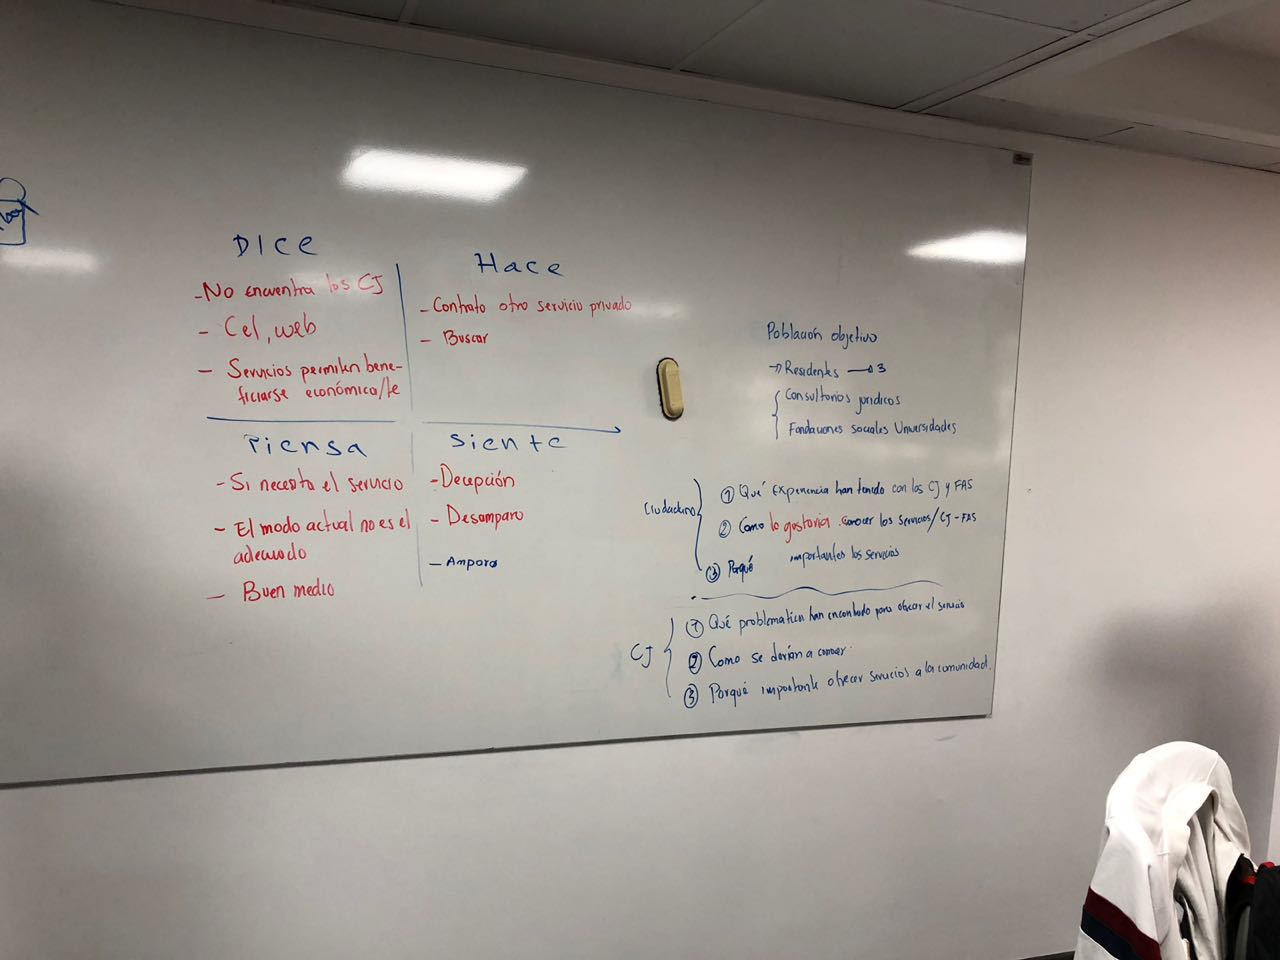 DICE
-No encuentra los CJ
- Cel, web
- Servicios permiten bene-
ficiarse económica/te
Hace
- Contrato otro servicio privado
- Buscar
Piensa
- Si necesita el servicio
- El modo actual no es el
adecuado
- Buen medio
Siente
- Decepción
- Desamparo
- Amparo
Población objetivo
→ Residentes → 3
Consultorios jurídicos
Fundaciones sociales Universidades
Ciudadano
① Qué experiencia han tenido con los CJ y FAS
② Como lo gustaria conocer los servicios/CJ-FAS
③ Porqué importantes los servicios
CJ
① Qué problematica han encontrado para ofrecer el servicio
② Como se darían a conocer.
③ Porqué importante ofrecer servicios a la comunidad.